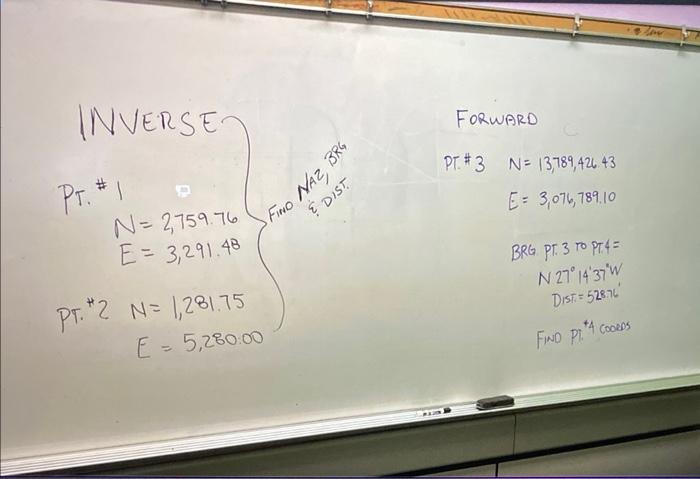 INVERSE
PT. #1
N = 2,759.76
E = 3,291.48
PT. #2 N = 1,281.75
E = 5,280.00
FIND NAZ, BRG
& DIST.
FORWARD
PT. #3 N = 13,789,426.43
E = 3,076,789.10
BRG. PT. 3 TO PT. 4 =
N 27° 14' 37" W
DIST. = 528.76'
FIND PT. #4 COORDS